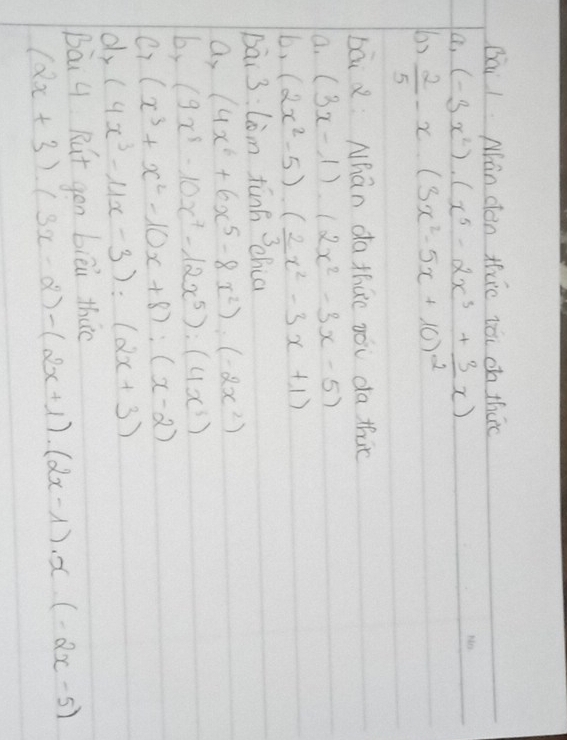 Bài 1: Nhân đơn thức với đa thức
a, (-3x²).(x⁵ - 2x³ + 3/2 x)
b, 2/5 - x.(3x² - 5x + 10)
Bài 2: Nhân đa thức với đa thức
a. (3x - 1).(2x² - 3x - 5)
b, (2x² - 5).(2/3 x² - 3x + 1)
Bài 3: Làm tính chia
a, (4x⁶ + 6x⁵ - 8x²):(-2x²)
b, (9x⁸ - 10x⁷ - 12x⁵):(4x³)
c, (x³ + x² - 10x + 8):(x - 2)
d, (4x³ - 11x - 3):(2x + 3)
Bài 4: Rút gọn biểu thức
(2x + 3).(3x - 2) - (2x + 1).(2x - 1).x.(-2x - 5)
No